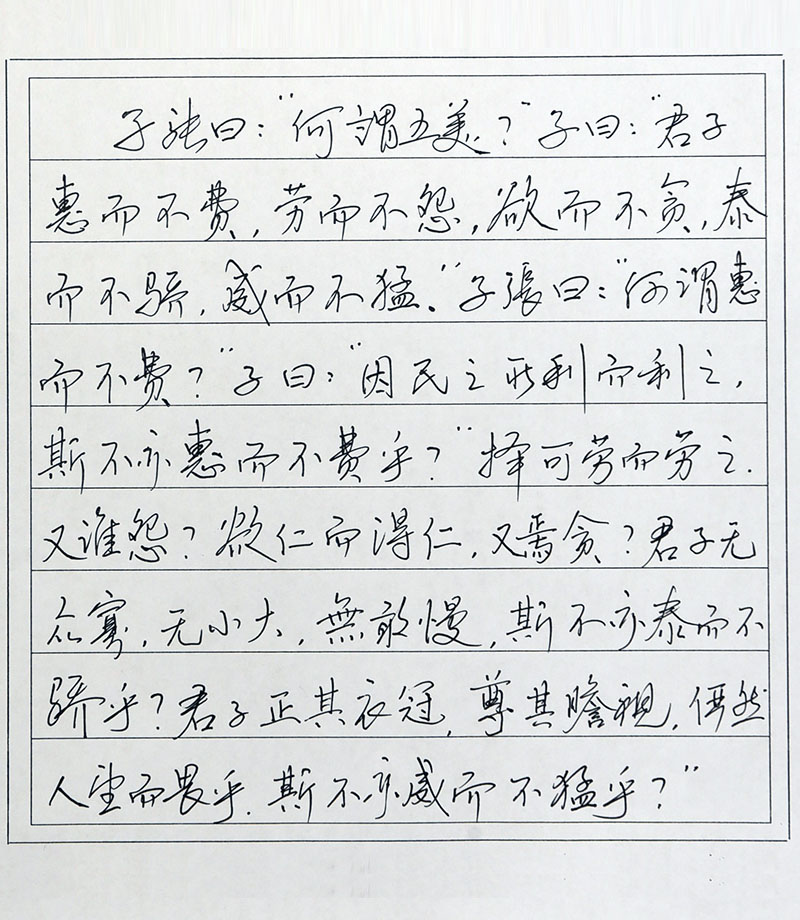 子张曰：“何謂五美？”子曰：“君子
惠而不費，劳而不怨，欲而不贪，泰
而不骄，威而不猛。”子張曰：“何谓惠
而不费？”子曰：“因民之所利而利之，
斯不亦惠而不费乎？”择可劳而劳之，
又谁怨？欲仁而得仁，又焉贪？君子无
众寡，无小大，無敢慢，斯不亦泰而不
骄乎？君子正其衣冠，尊其瞻視，俨然
人望而畏乎，斯不亦威而不猛乎？”